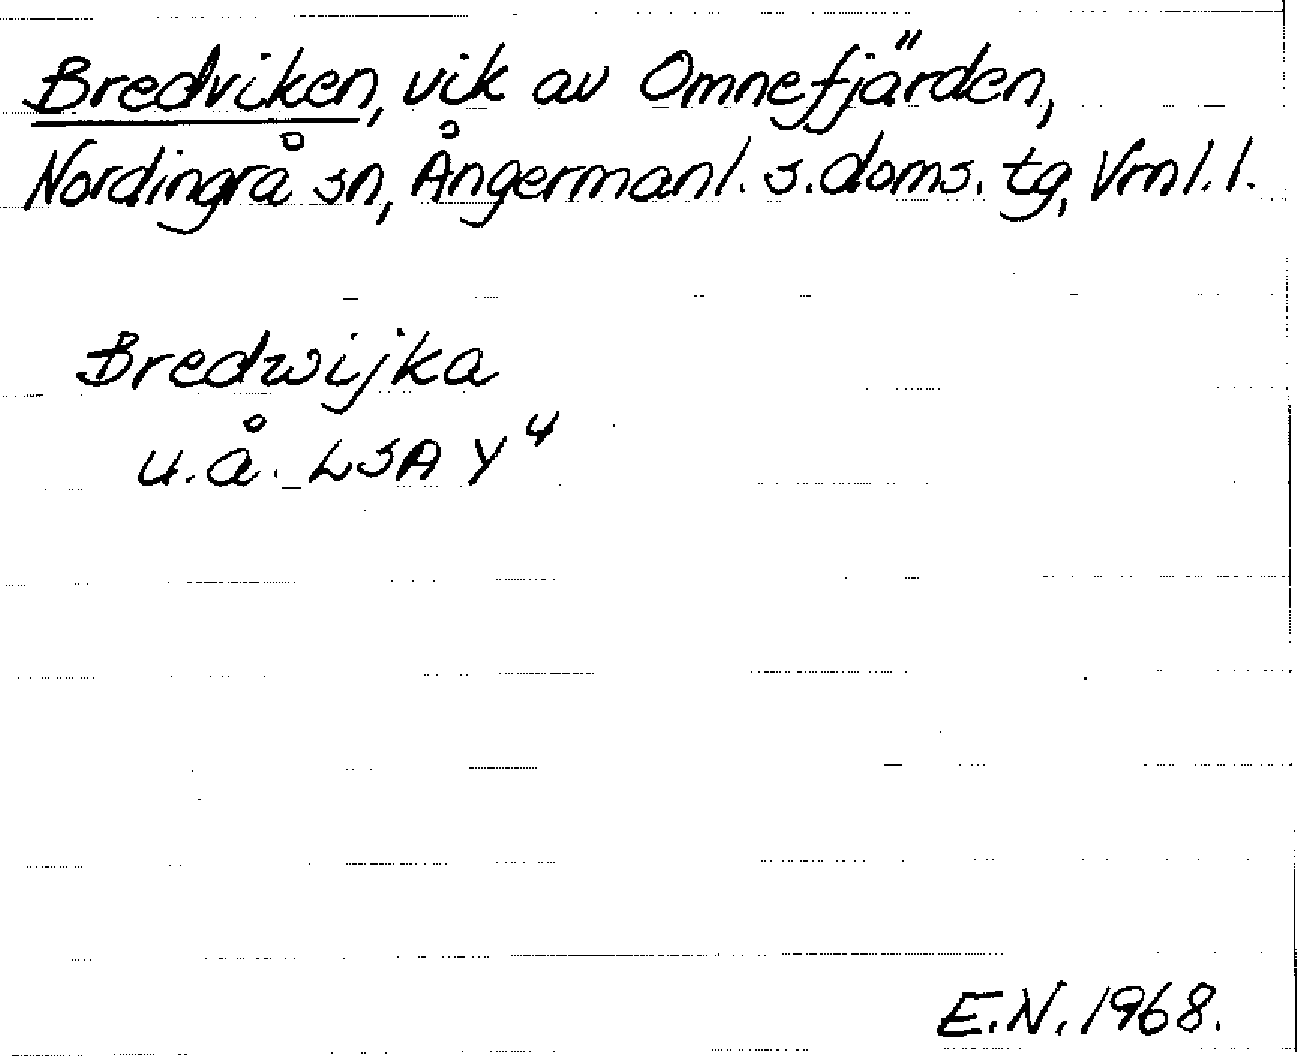 Bredviken, vik av Omnefjärden,
Nordingrå sn, Ångermanl. s. doms. tg, Vrnl. l.
Bredwijka
u.å. LSA Y⁴
E.N. 1968.